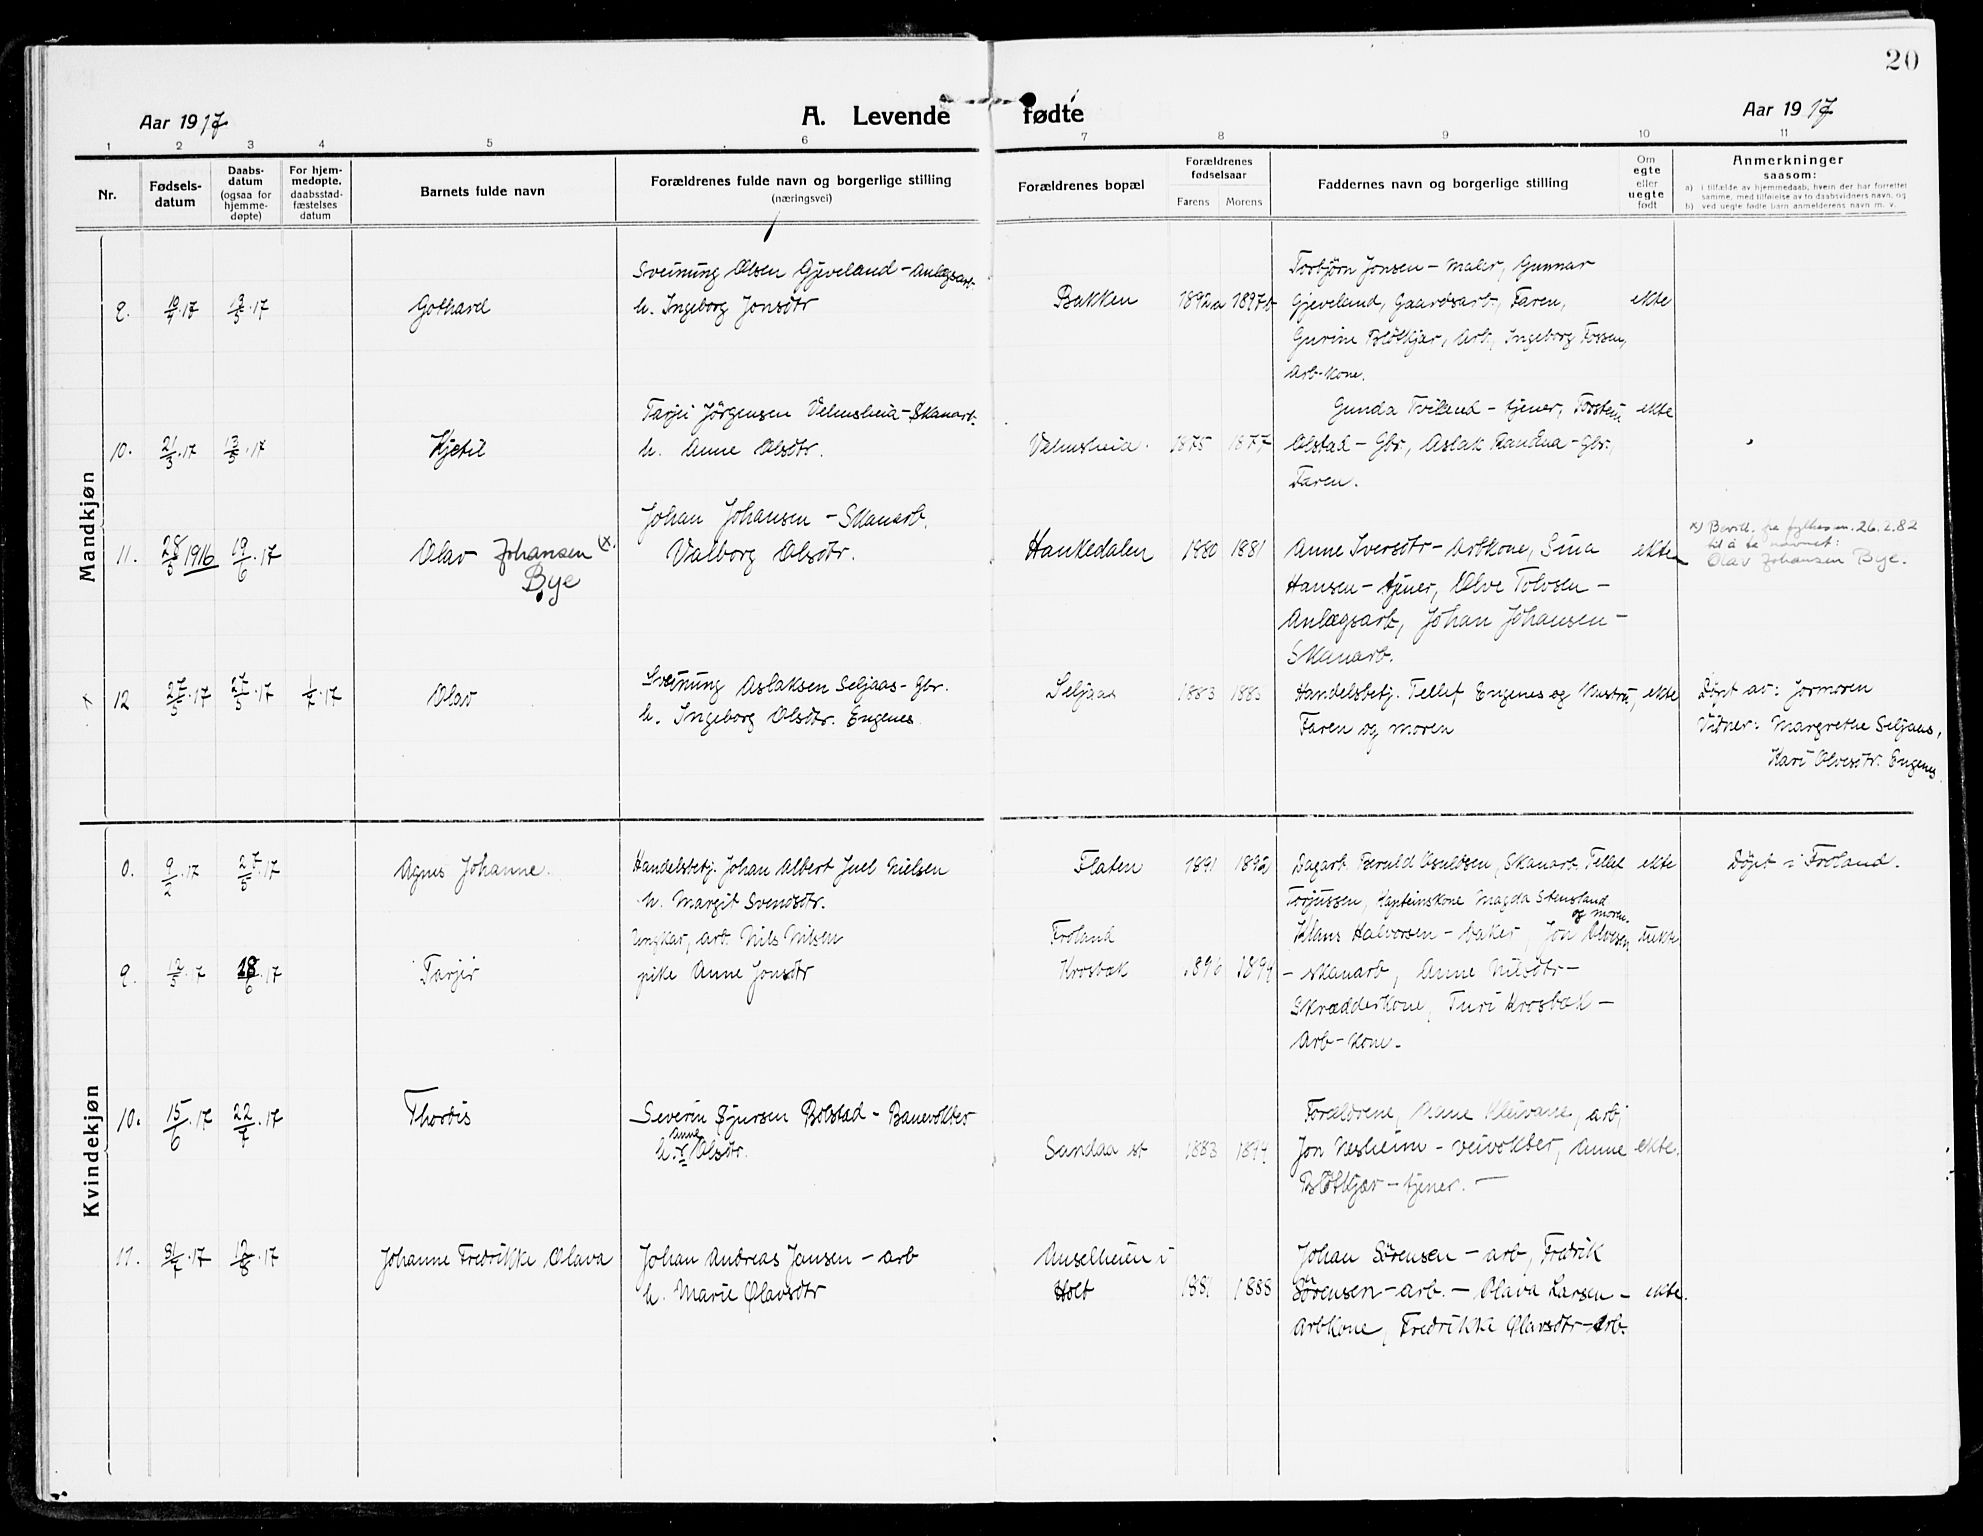 20
Aar 1917
A. Levende fødte
Aar 1917
1 2 3 4 5 6 7 8 9 10 11
Nr.
Fødsels-
datum
Daabs-
datum
(ogsaa for
hjemme-
døpte)
For hjem-
medøpte,
daabsstad-
fæstelses
datum
Barnets fulde navn
Forældrenes fulde navn og borgerlige stilling
(næringsvei)
Forældrenes bopæl
Forældrenes
fødselsaar
Farens Morens
Faddernes navn og borgerlige stilling
Om
egte
eller
uegte
født
Anmerkninger
saasom:
a) i tilfælde av hjemmedaab, hvem der har forrettet
samme, med tilføielse av to daabsvidners navn, og
b) ved uegte fødte barn anmelderens navn m. v.
Mandkjøn
9. 19/4.17 13/5.17 Gothard
Sveinung Olsen Gjeveland - Anlægsarb.
h. Ingeborg Jonsdtr
Bakken 1892 1897 ekte
Torbjørn Jonsen - maler, Gunnar
Gjeveland, Gaardsarb., Faren,
Gurine Bløtkjær, Arb., Ingeborg Fossen,
Arb-kone.
10. 21/3.17 13/5.17 Kjetil
Tarjei Jörgensen Velmsheia - Skanarb.
h. Anne Olsdtr.
Velmsheia. 1875 1877
Gunda Tviland - tjener, Torstein ekte
Olstad - Gbr., Aslak - Gbr.,
Faren.
11. 28/5 1916 19/6.17 Olav Johansen (x.
Bye
Johan Johansen - Skanarb.
Valborg Olsdtr.
Hankedalen 1880 1881 ekte
Anne Iversdtr - Arbkone, Sina
Hansen - tjener, Olve Tolvsen -
Anlægsarb, Johan Johansen -
Skanarb.
x) Bevill. fra fylkesm. 26.2.82
til å ta navnet:
Olav Johansen Bye.
x 12 27/5.17 27/5.17 1/7.17 Olav
Sveinung Aslaksen Seljaas - Gbr.
h. Ingeborg Olsdtr. Engenes.
Seljaas 1883 1885
Handelsbetj. Tellef Engenes og Hustru, ekte
Faren og moren
Döpt av: Jormoren
Vidner: Margrethe Seljaas,
Kari Olvesdtr. Engenes.
Kvindekjøn
0. 9/2.17 27/5.17 Agnes Johanne.
Handelsbetj. Johan Albert Juel Nielsen
h. Margit Svendsdtr.
Flaten 1891 1892 ekte
Dagarb. Osuldsen, Skanarb. Tellef
Torjussen, Kapteinskone Magda Stensland
og moren.
Döpt i Froland.
9. 12/5.17 18/6.17 Tarjir
Ungkar, arb. Nils Nilsen
pike Anne Jonsdtr
Froland
Krosbak 1896 1894
Klaus Halvorsen - baker, Jon Olvesen uekte
- skanarb, Anne Nilsdtr -
Skrædderkone, Turi Krosbak -
Arb-kone.
10. 15/6.17 22/7.17 Thordis
Severin Sjursen Bolstad - Banevokter
h. Anne Olsdtr.
Sandaa st 1883 1894
Forældrene, Kleivane, arb,
Jon Nesheim - veivokter, Anne ekte.
Bløtkjær - tjener. -
11. 31/7.17 12/8.17 Johanne Fredrikke Olava
Johan Andreas Jensen - arb
h. Marie Olavsdtr
Auselheien i
Holt 1881 1888 ekte.
Johan Sörensen - arb, Fredrik
Sörensen - arb. - Olava Larsen -
Arbkone, Fredrikke Olavsdtr - Arb.